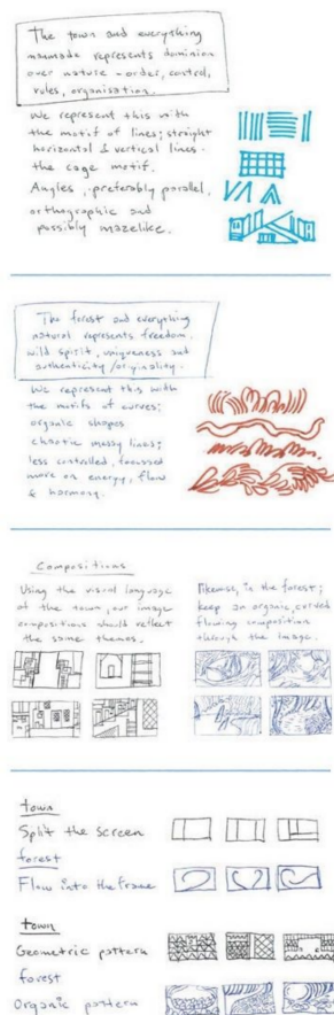 The town and everything
manmade represents dominion
over nature - order, control,
rules, organisation.
We represent this with
the motif of lines; straight
horizontal & vertical lines.
the cage motif.
Angles, preferably parallel,
orthographic and
possibly mazelike.
The forest and everything
natural represents freedom,
wild spirit, uniqueness and
authenticity/originality.
We represent this with
the motifs of curves;
organic shapes
chaotic messy lines;
less controlled, focussed
more on energy, flow
& harmony.
Compositions
Using the visual language
of the town, our image
compositions should reflect
the same themes.
likewise, in the forest;
keep an organic, curved
flowing composition
through the image.
town
Split the screen
forest
Flow into the frame
town
Geometric pattern
forest
Organic pattern